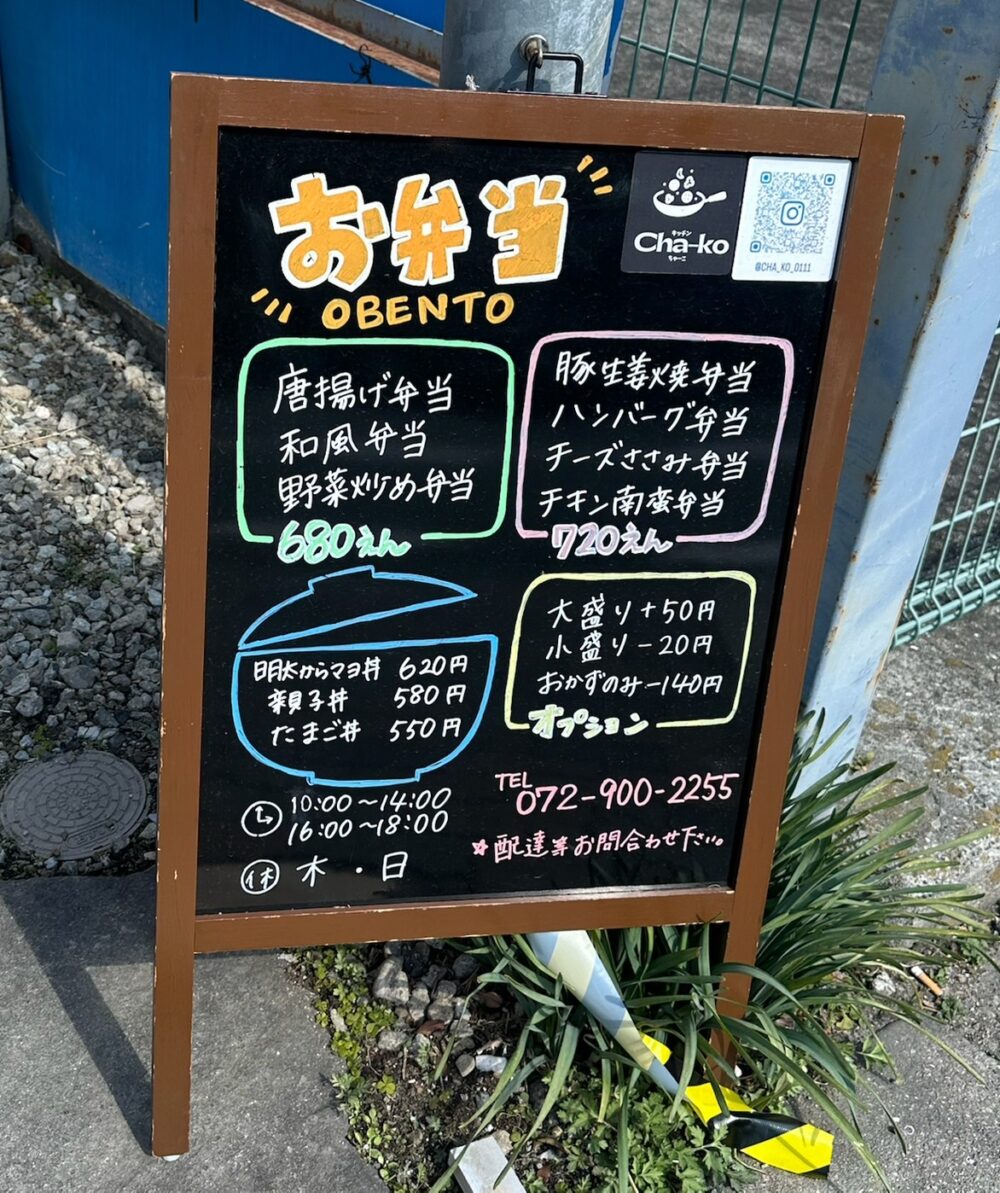 お弁当
OBENTO
キッチン
Cha-ko
ちゃーこ
@CHA_KO_0111
唐揚げ弁当
和風弁当
野菜炒め弁当
680えん
豚生姜焼弁当
ハンバーグ弁当
チーズささみ弁当
チキン南蛮弁当
720えん
明太からマヨ丼 620円
親子丼 580円
たまご丼 550円
大盛り+50円
小盛り-20円
おかずのみ-140円
オプション
10:00～14:00
16:00～18:00
休 木・日
TEL
072-900-2255
☆配達等お問合わせ下さい。